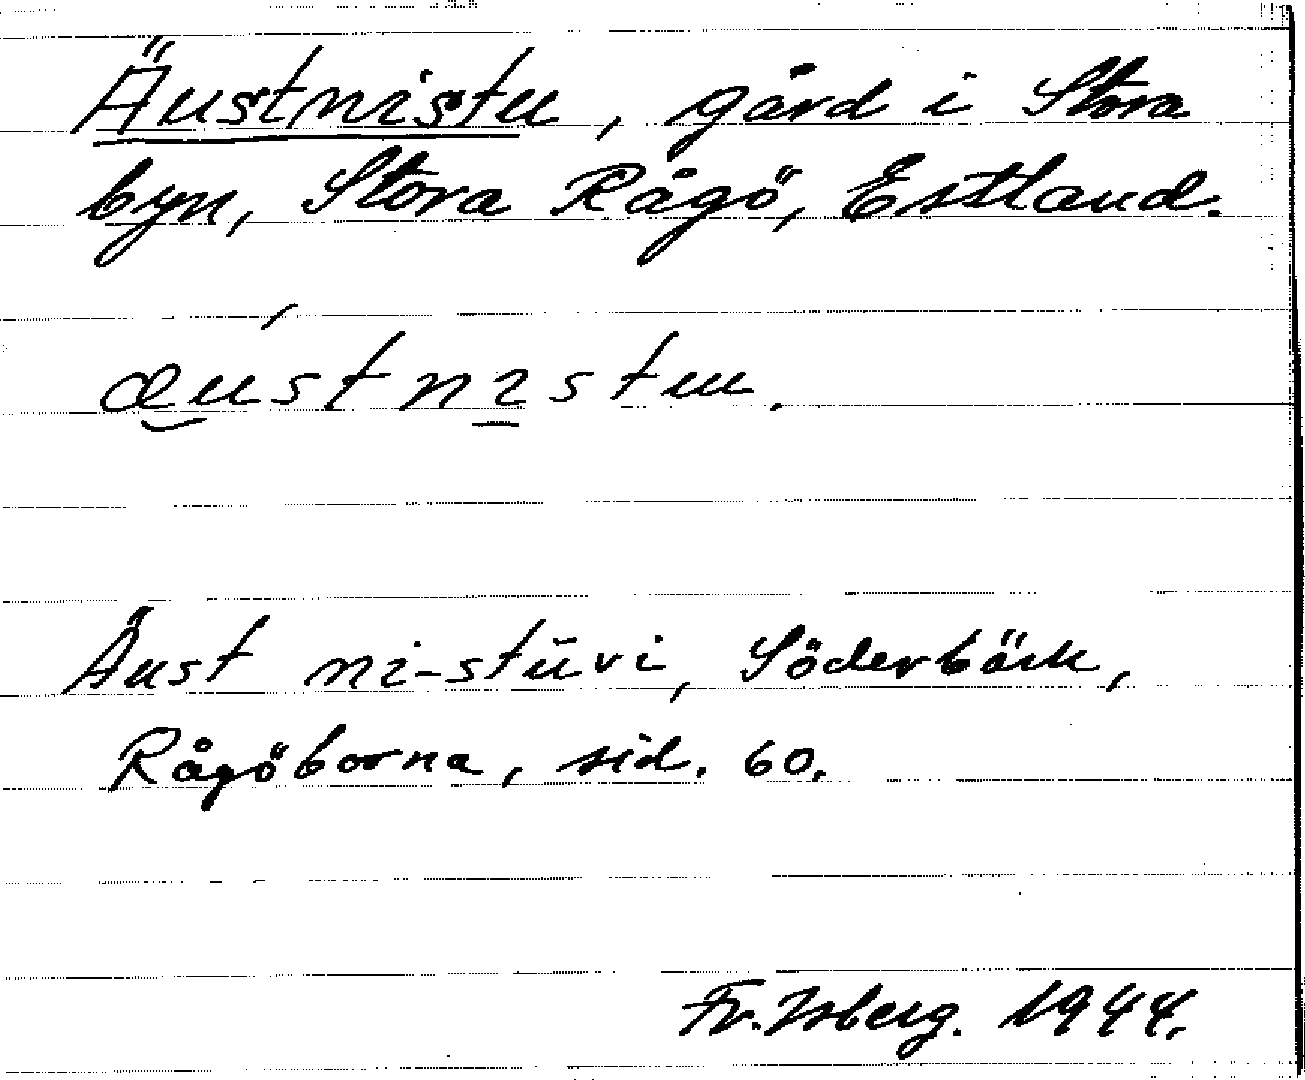 Äustnistu, gård i Stora
byn, Stora Rågö, Estland.
æustnistu.
Äust ni-stūvi, Söderbäck,
Rågöborna, sid. 60.
Fr. Isberg. 1944.